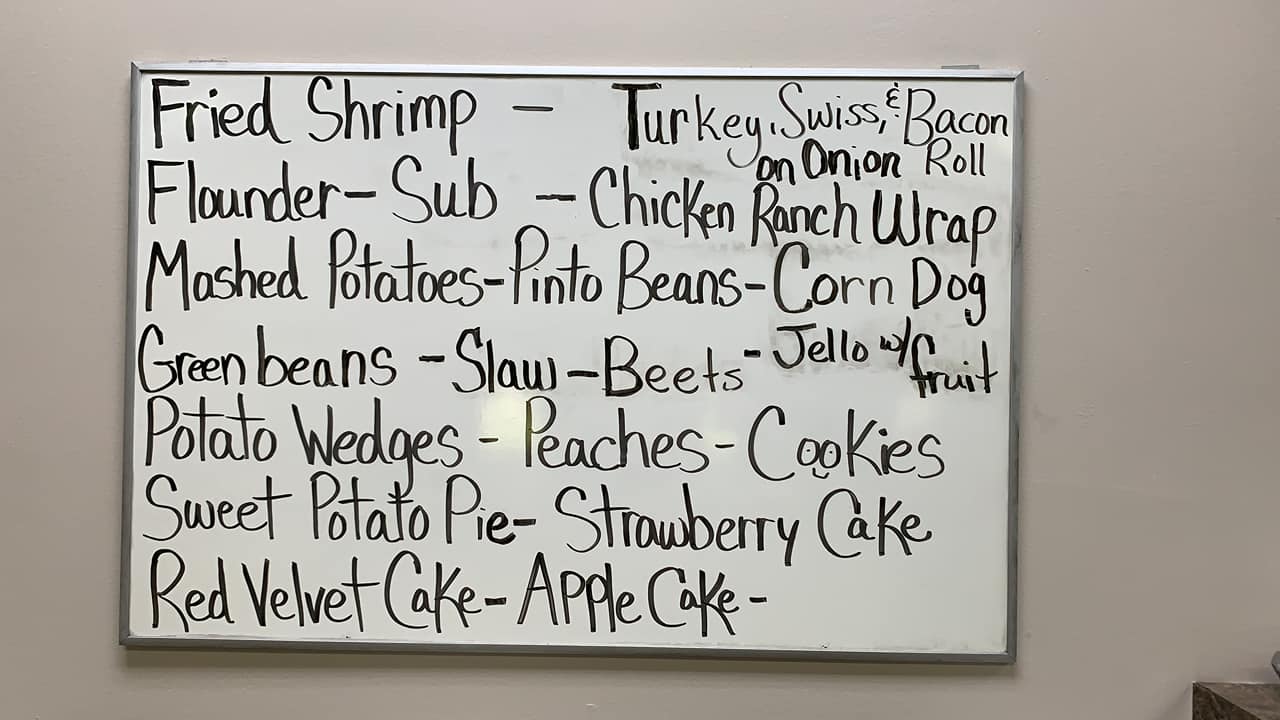 Fried Shrimp - Turkey, Swiss, & Bacon
on Onion Roll
Flounder - Sub - Chicken Ranch Wrap
Mashed Potatoes - Pinto Beans - Corn Dog
Green beans - Slaw - Beets - Jello w/
fruit
Potato Wedges - Peaches - Cookies
Sweet Potato Pie - Strawberry Cake
Red Velvet Cake - Apple Cake -